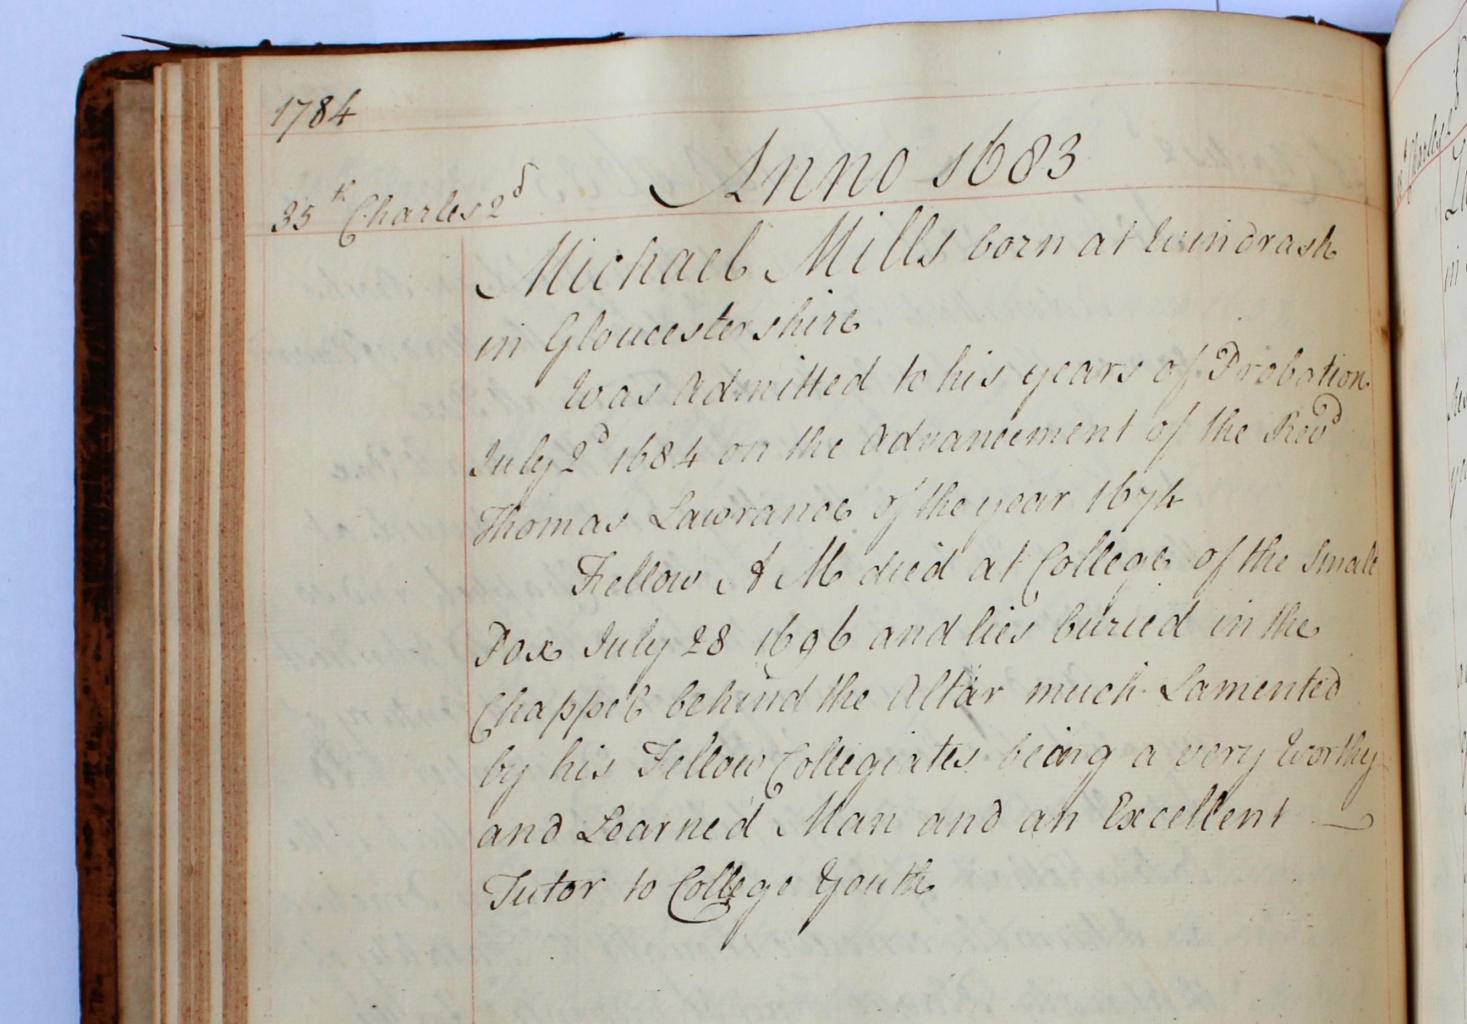 1784
Anno 1683
35th Charles 2d
Michael Mills born at Windrash
in Gloucestershire
Was Admitted to his years of Probation
July 2d 1684 on the Advancement of the Revd
Thomas Lawrance of the year 1674
Fellow A M died at College of the Small
Pox July 28 1696 and lies buried in the
Chappel behind the Altar much Lamented
by his Fellow Collegiates being a very Worthy
and Learned Man and an Excellent
Tutor to College Youth